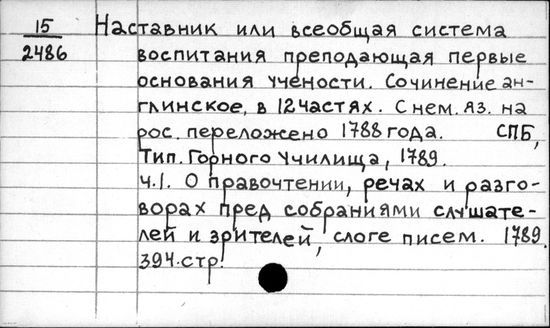 15
2486
Наставник или всеобщая система
воспитания преподающая первые
основания учености. Сочинение ан-
глинское, в 12 частях. С нем. яз. на
рос. переложено 1788 года. СПБ,
Тип. Горного Училища, 1789.
ч.1. О правочтении, речах и разго-
ворах пред собраниями слушате-
лей и зрителей, слоге писем. 1789.
394.стр.